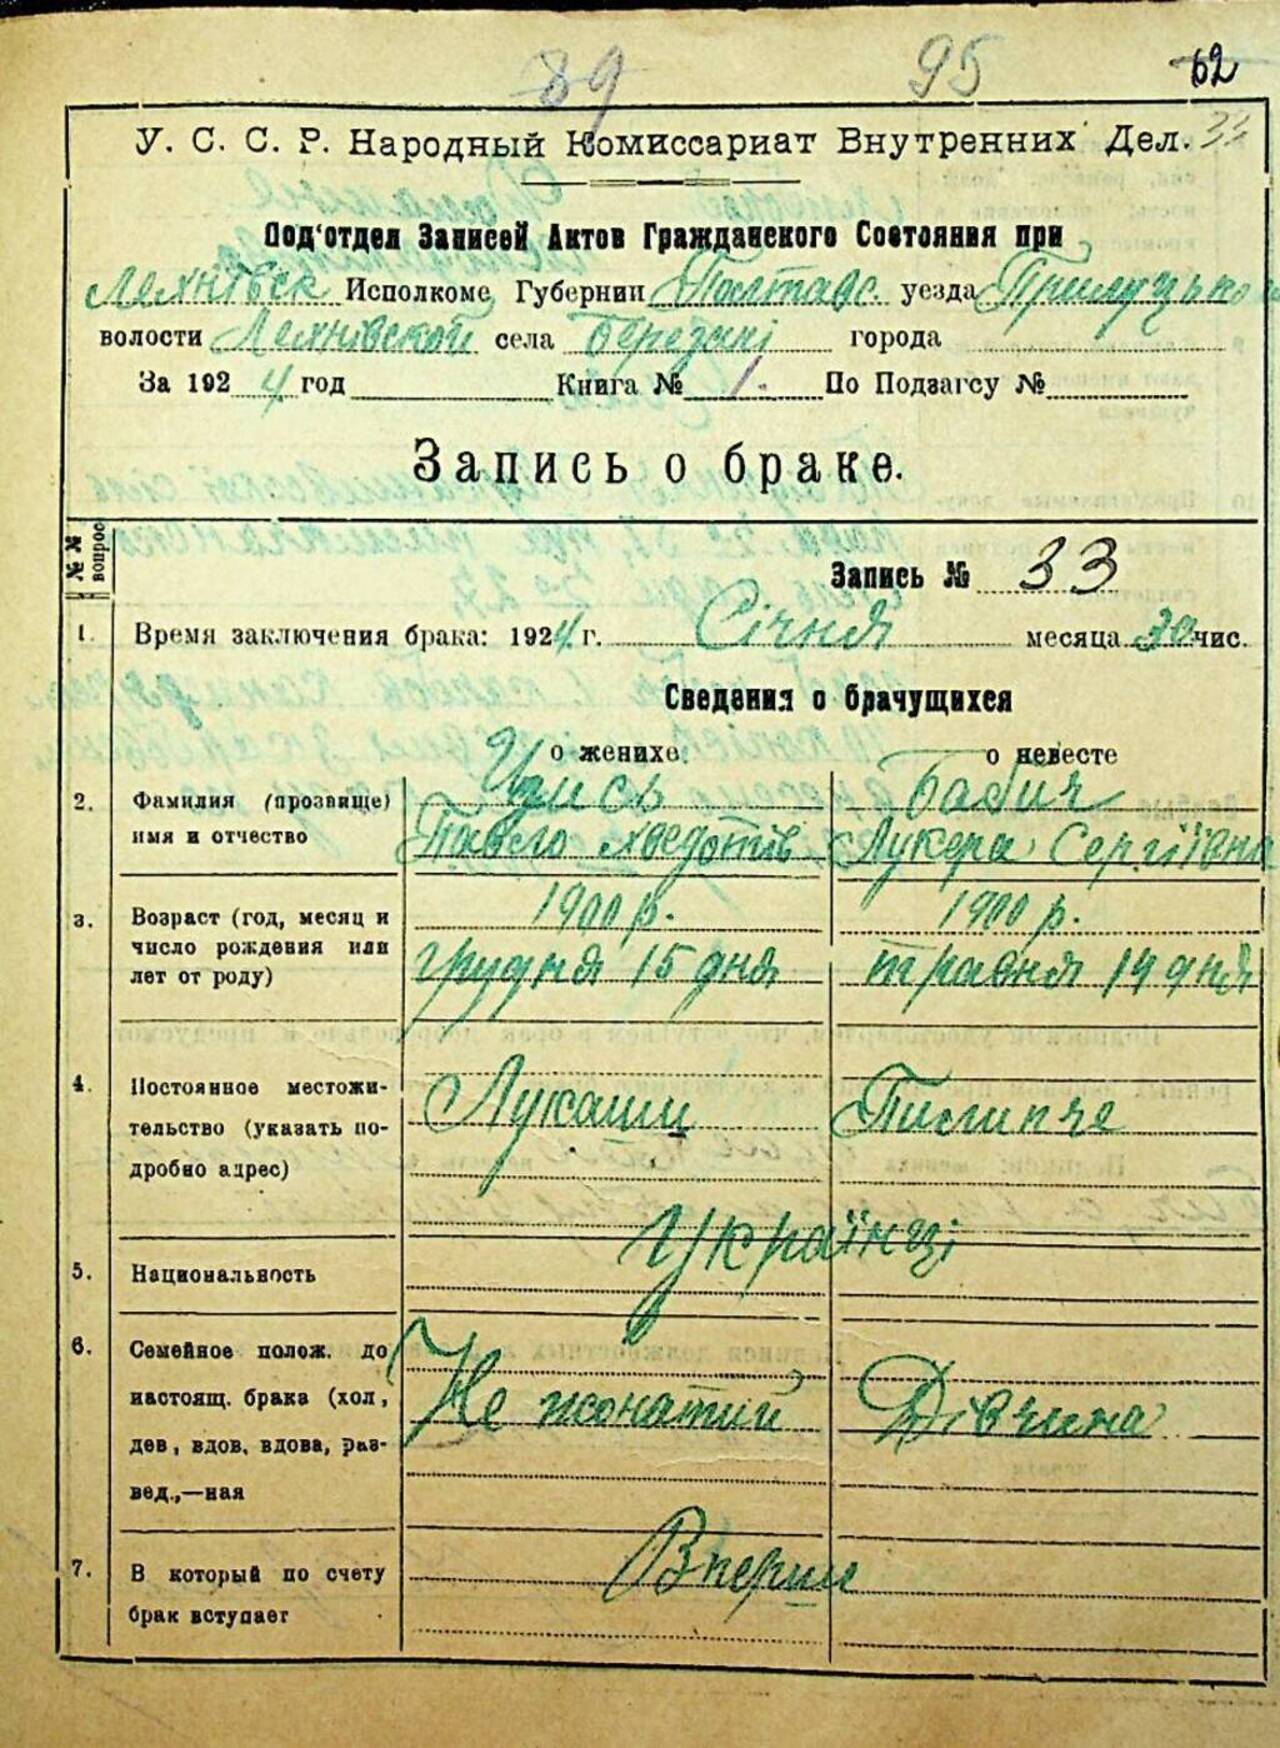 89 95 62
У. С. С. Р. Народный Комиссариат Внутренних Дел. 33
Под'отдел Записей Актов Гражданского Состояния при
Лехнівськ Исполкоме, Губернии Полтавс. уезда Прилуцько
волости Лехнівской села Березані города
За 1924 год Книга № 1. По Подзагсу №
Запись о браке.
№№ вопрос
Запись № 33
1. Время заключения брака: 1924 г. Січня месяца 30 чис.
Сведения о брачущихся
о женихе о невесте
2. Фамилия (прозвище) Бабич
имя и отчество Павло Хведотів Лукера Сергіївна
3. Возраст (год, месяц и 1900 р. 1900 р.
число рождения или грудня 15 дня травня 14 дня
лет от роду)
4. Постоянное местожи- Лукаши
тельство (указать по-
дробно адрес)
Українці
5. Национальность
6. Семейное полож. до
настоящ. брака (хол, Не жонатий Дівчина
дев, вдов, вдова, раз-
вед.,—ная
7. В который по счету Вперше
брак вступает